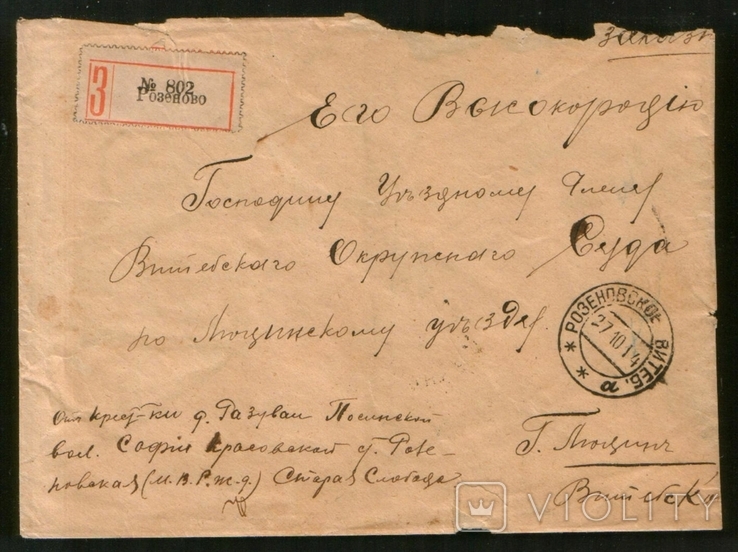 заказн
З
№ 802
Розеново
Его Высокородію
Господину Уѣздному Члену
Витебскаго Окружнаго Суда
по Люцинскому уѣзду.
РОЗЕНОВСКОЕ ВИТЕБ.
27 10 14
а
От крест-ки д. Разуваи Посинской
вол. Софіи Красовской ст. Розе-
новская (М. В. Р. ж. д.) Старая Слобода
Г. Люцинъ
Витебск
VIOLITY